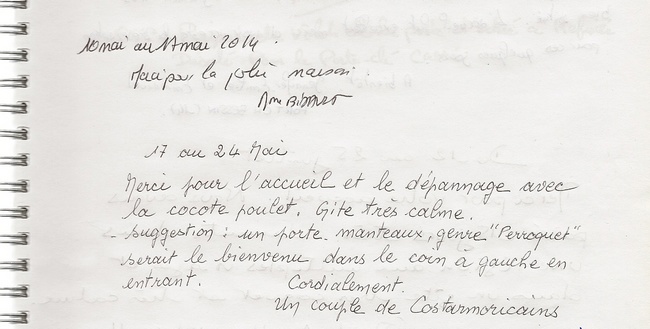 10 mai au 17 mai 2014.
Merci pour la jolie maison
17 au 24 Mai
Merci pour l'accueil et le dépannage avec
la cocote poulet. Gite très calme.
- suggestion : un porte-manteaux, genre "Perroquet"
serait le bienvenu dans le coin à gauche en
entrant. Cordialement.
Un couple de Costarmoricains